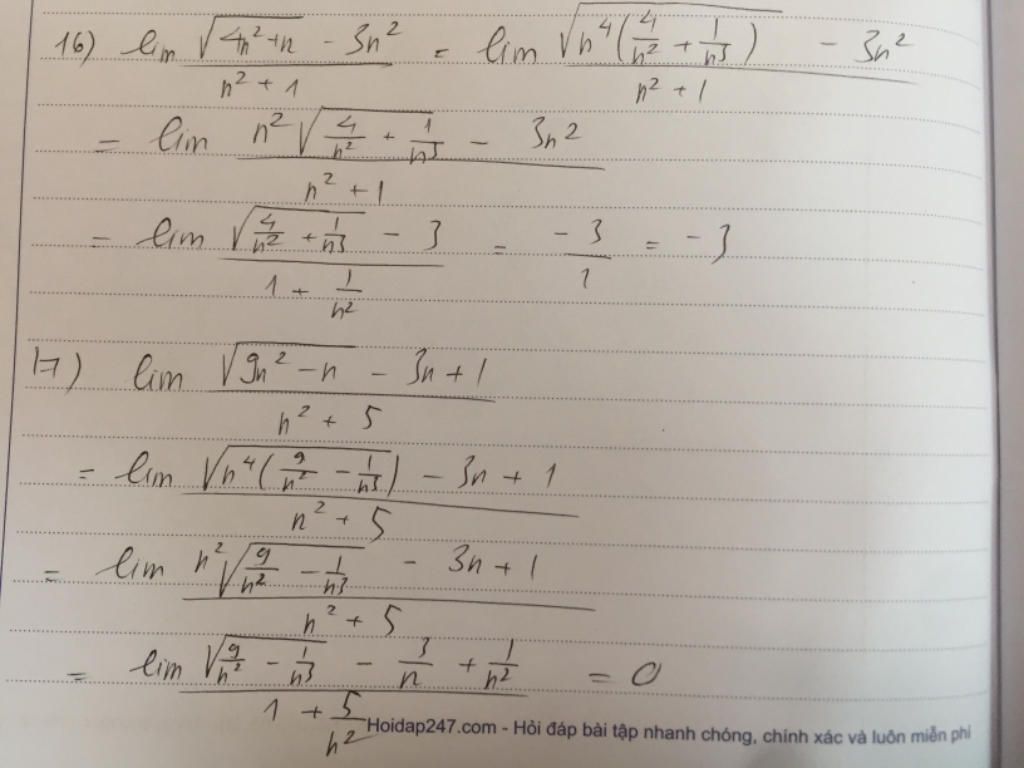 16) lim (√(4n²+n) - 3n²)/(n² + 1) = lim (√(n⁴(4/n² + 1/n³)) - 3n²)/(n² + 1)
= lim (n²√(4/n² + 1/n³) - 3n²)/(n² + 1)
= lim (√(4/n² + 1/n³) - 3)/(1 + 1/n²) = -3/1 = -3
17) lim (√(9n² - n) - 3n + 1)/(n² + 5)
= lim (√(n⁴(9/n² - 1/n³)) - 3n + 1)/(n² + 5)
= lim (n²√(9/n² - 1/n³) - 3n + 1)/(n² + 5)
= lim (√(9/n² - 1/n³) - 3/n + 1/n²)/(1 + 5/n²) = 0
Hoidap247.com - Hỏi đáp bài tập nhanh chóng, chính xác và luôn miễn phí